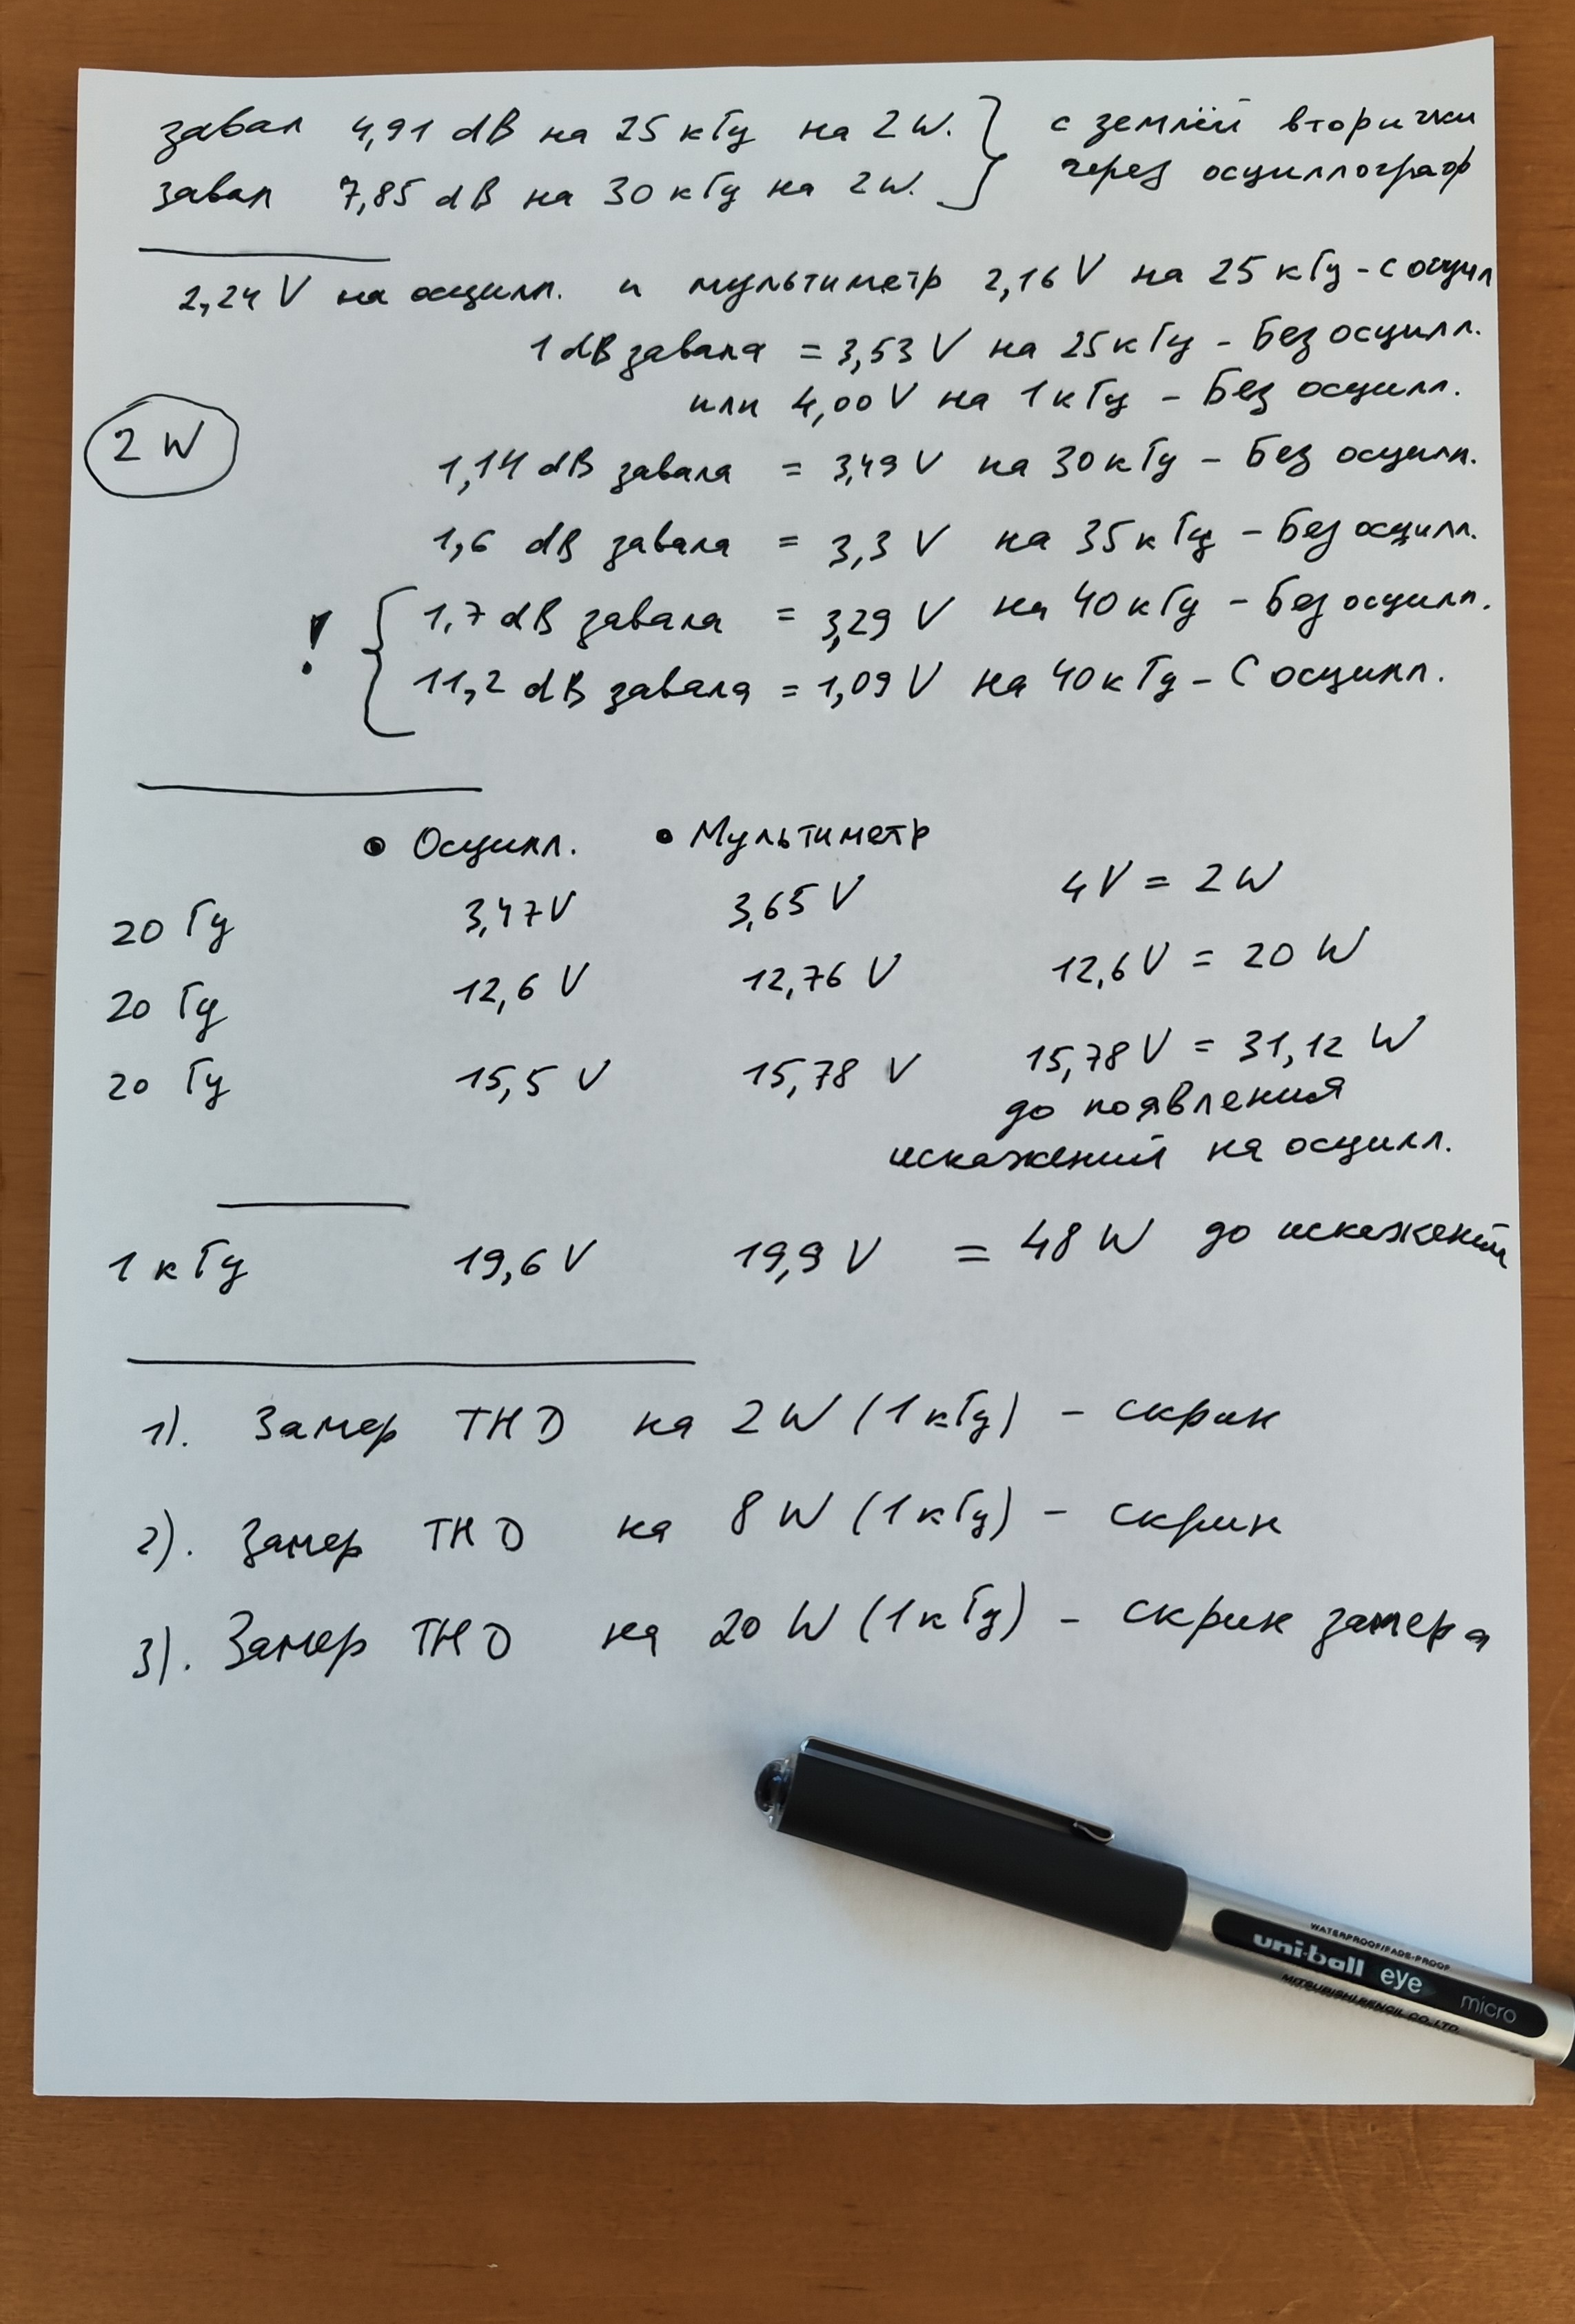 завал 4,91 dB на 25 кГц на 2 W. } с землёй вторички
завал 7,85 dB на 30 кГц на 2 W. } через осциллограф
2,24 V на осцилл. и мультиметр 2,16 V на 25 кГц - С осцил
1 dB завала = 3,53 V на 25 кГц - Без осцилл.
или 4,00 V на 1 кГц - Без осцилл.
2 W
1,14 dB завала = 3,49 V на 30 кГц - Без осцилл.
1,6 dB завала = 3,3 V на 35 кГц - Без осцилл.
! { 1,7 dB завала = 3,29 V на 40 кГц - Без осцилл.
11,2 dB завала = 1,09 V на 40 кГц - С осцилл.
• Осцилл. • Мультиметр
20 Гц 3,47 V 3,65 V 4 V = 2 W
20 Гц 12,6 V 12,76 V 12,6 V = 20 W
20 Гц 15,5 V 15,78 V 15,78 V = 31,12 W
до появления
искажений на осцилл.
1 кГц 19,6 V 19,9 V = 48 W до искажений
1). Замер THD на 2 W (1 кГц) - скрин
2). Замер THD на 8 W (1 кГц) - скрин
3). Замер THD на 20 W (1 кГц) - скрин замера
WATERPROOF/FADE-PROOF
uni-ball eye micro
MITSUBISHI PENCIL CO., LTD.